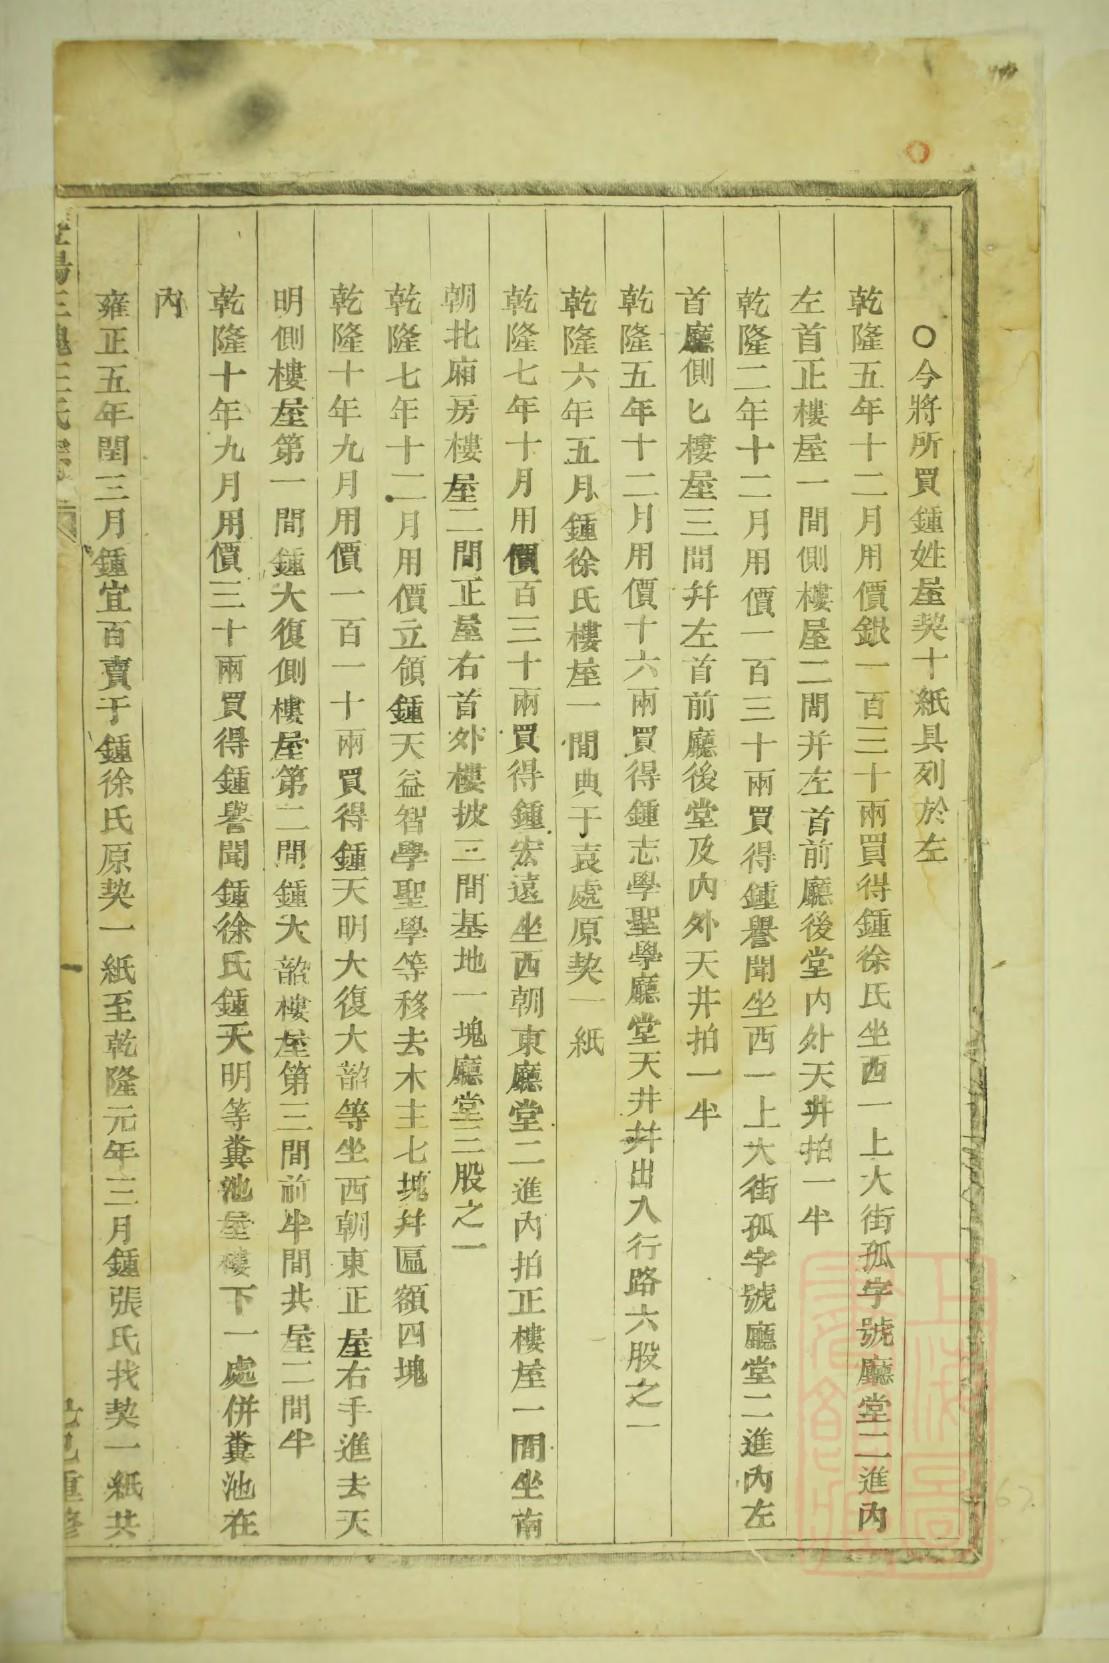 ○今將所買鍾姓屋契十紙具列於左
乾隆五年十二月用價銀一百三十兩買得鍾徐氏坐西一上大街孤字號廳堂二進內
左首正樓屋一間側樓屋二間并左首前廳後堂內外天井拍一半
乾隆二年十二月用價一百三十兩買得鍾譽聞坐西一上大街孤字號廳堂二進內左
首廳側匕樓屋三間并左首前廳後堂及內外天井拍一半
乾隆五年十二月用價十六兩買得鍾志學聖學廳堂天井并出入行路六股之一
乾隆六年五月鍾徐氏樓屋一間典于袁處原契一紙
乾隆七年十月用價百三十兩買得鍾宏遠坐西朝東廳堂二進內拍正樓屋一間坐南
朝北廂房樓屋二間正屋右首外樓披三間基地一塊廳堂三股之一
乾隆七年十二月用價立領鍾天益智學聖學等移去木主七塊并匾額四塊
乾隆十年九月用價一百一十兩買得鍾天明大復大韶等坐西朝東正屋右手進去天
明側樓屋第一間鍾大復側樓屋第二間鍾大韶樓屋第三間前半間共屋二間半
乾隆十年九月用價三十兩買得鍾譽聞鍾徐氏鍾天明等糞池屋樓下一處併糞池在
內
雍正五年閏三月鍾宜百賣于鍾徐氏原契一紙至乾隆元年三月鍾張氏找契一紙共
三槐王氏
一
重修